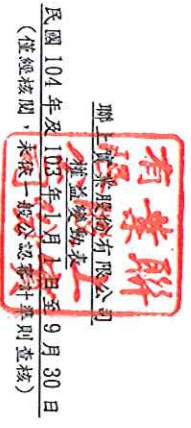 聯上實業股份有限公司
權益變動表
民國 104 年及 103 年 1 月 1 日至 9 月 30 日
(僅經核閱，未依一般公認審計準則查核)